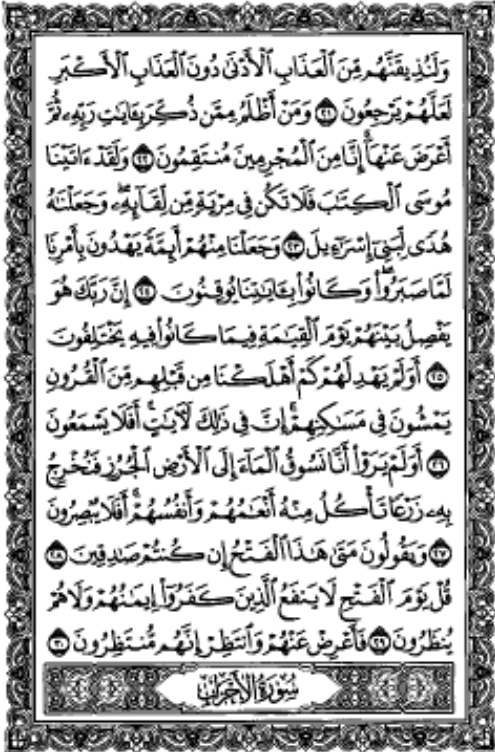 وَلَنُذِيقَنَّهُم مِّنَ ٱلْعَذَابِ ٱلْأَدْنَىٰ دُونَ ٱلْعَذَابِ ٱلْأَكْبَرِ
لَعَلَّهُمْ يَرْجِعُونَ ٢١ وَمَنْ أَظْلَمُ مِمَّن ذُكِّرَ بِـَٔايَٰتِ رَبِّهِۦ ثُمَّ
أَعْرَضَ عَنْهَآ ۚ إِنَّا مِنَ ٱلْمُجْرِمِينَ مُنتَقِمُونَ ٢٢ وَلَقَدْ ءَاتَيْنَا
مُوسَى ٱلْكِتَٰبَ فَلَا تَكُن فِى مِرْيَةٍ مِّن لِّقَآئِهِۦ ۖ وَجَعَلْنَٰهُ
هُدًى لِّبَنِىٓ إِسْرَٰٓءِيلَ ٢٣ وَجَعَلْنَا مِنْهُمْ أَئِمَّةً يَهْدُونَ بِأَمْرِنَا
لَمَّا صَبَرُوا۟ ۖ وَكَانُوا۟ بِـَٔايَٰتِنَا يُوقِنُونَ ٢٤ إِنَّ رَبَّكَ هُوَ
يَفْصِلُ بَيْنَهُمْ يَوْمَ ٱلْقِيَٰمَةِ فِيمَا كَانُوا۟ فِيهِ يَخْتَلِفُونَ
٢٥ أَوَلَمْ يَهْدِ لَهُمْ كَمْ أَهْلَكْنَا مِن قَبْلِهِم مِّنَ ٱلْقُرُونِ
يَمْشُونَ فِى مَسَٰكِنِهِمْ ۚ إِنَّ فِى ذَٰلِكَ لَـَٔايَٰتٍ ۖ أَفَلَا يَسْمَعُونَ
٢٦ أَوَلَمْ يَرَوْا۟ أَنَّا نَسُوقُ ٱلْمَآءَ إِلَى ٱلْأَرْضِ ٱلْجُرُزِ فَنُخْرِجُ
بِهِۦ زَرْعًا تَأْكُلُ مِنْهُ أَنْعَٰمُهُمْ وَأَنفُسُهُمْ ۖ أَفَلَا يُبْصِرُونَ
٢٧ وَيَقُولُونَ مَتَىٰ هَٰذَا ٱلْفَتْحُ إِن كُنتُمْ صَٰدِقِينَ ٢٨
قُلْ يَوْمَ ٱلْفَتْحِ لَا يَنفَعُ ٱلَّذِينَ كَفَرُوٓا۟ إِيمَٰنُهُمْ وَلَا هُمْ
يُنظَرُونَ ٢٩ فَأَعْرِضْ عَنْهُمْ وَٱنتَظِرْ إِنَّهُم مُّنتَظِرُونَ ٣٠
سُورَةُ الأَحْزَابِ